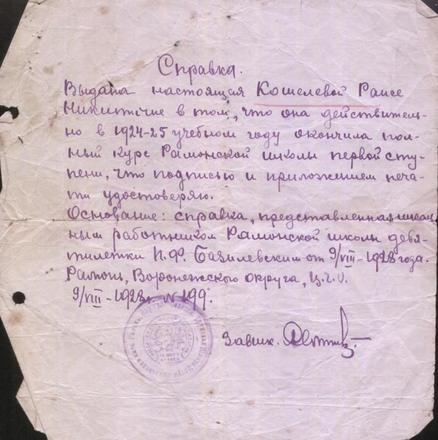 Справка.
Выдана настоящая Кошелевой Раисе
Никитичне в том, что она действитель-
но в 1924-25 учебном году окончила пол-
ный курс Рамонской школы первой сту-
пени, что подписью и приложением печа-
ти удостоверяю.
Основание: справка, представленная школь
ным работником Рамонской школы девя-
тилетки И.Ф. Базилевским от 9/VIII-1928 года.
Рамонь, Воронежского Округа, Ц.Ч.О.
9/VIII-1928г. №199.
Завшк.